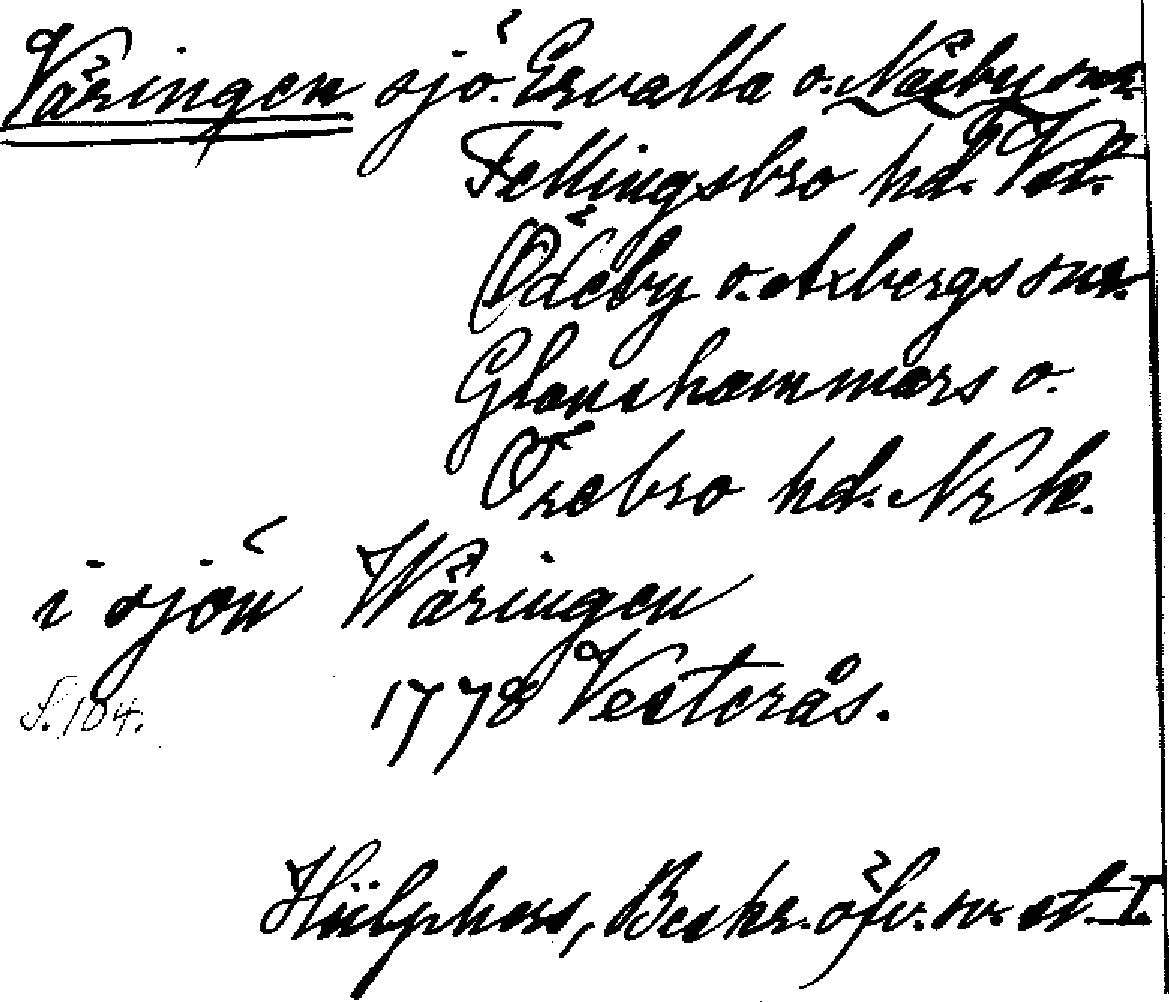 Väringen sjö. Ervalla o. Näsby snr
Fellingsbro hd. Vstm.
Ödeby o. Axbergs snr.
Glanshammars o.
Örebro hd. Nrk.
i sjön Wäringen
1778 Vesterås.
S. 184.
Hülphers, Beskr. öfv. sv. st. I.